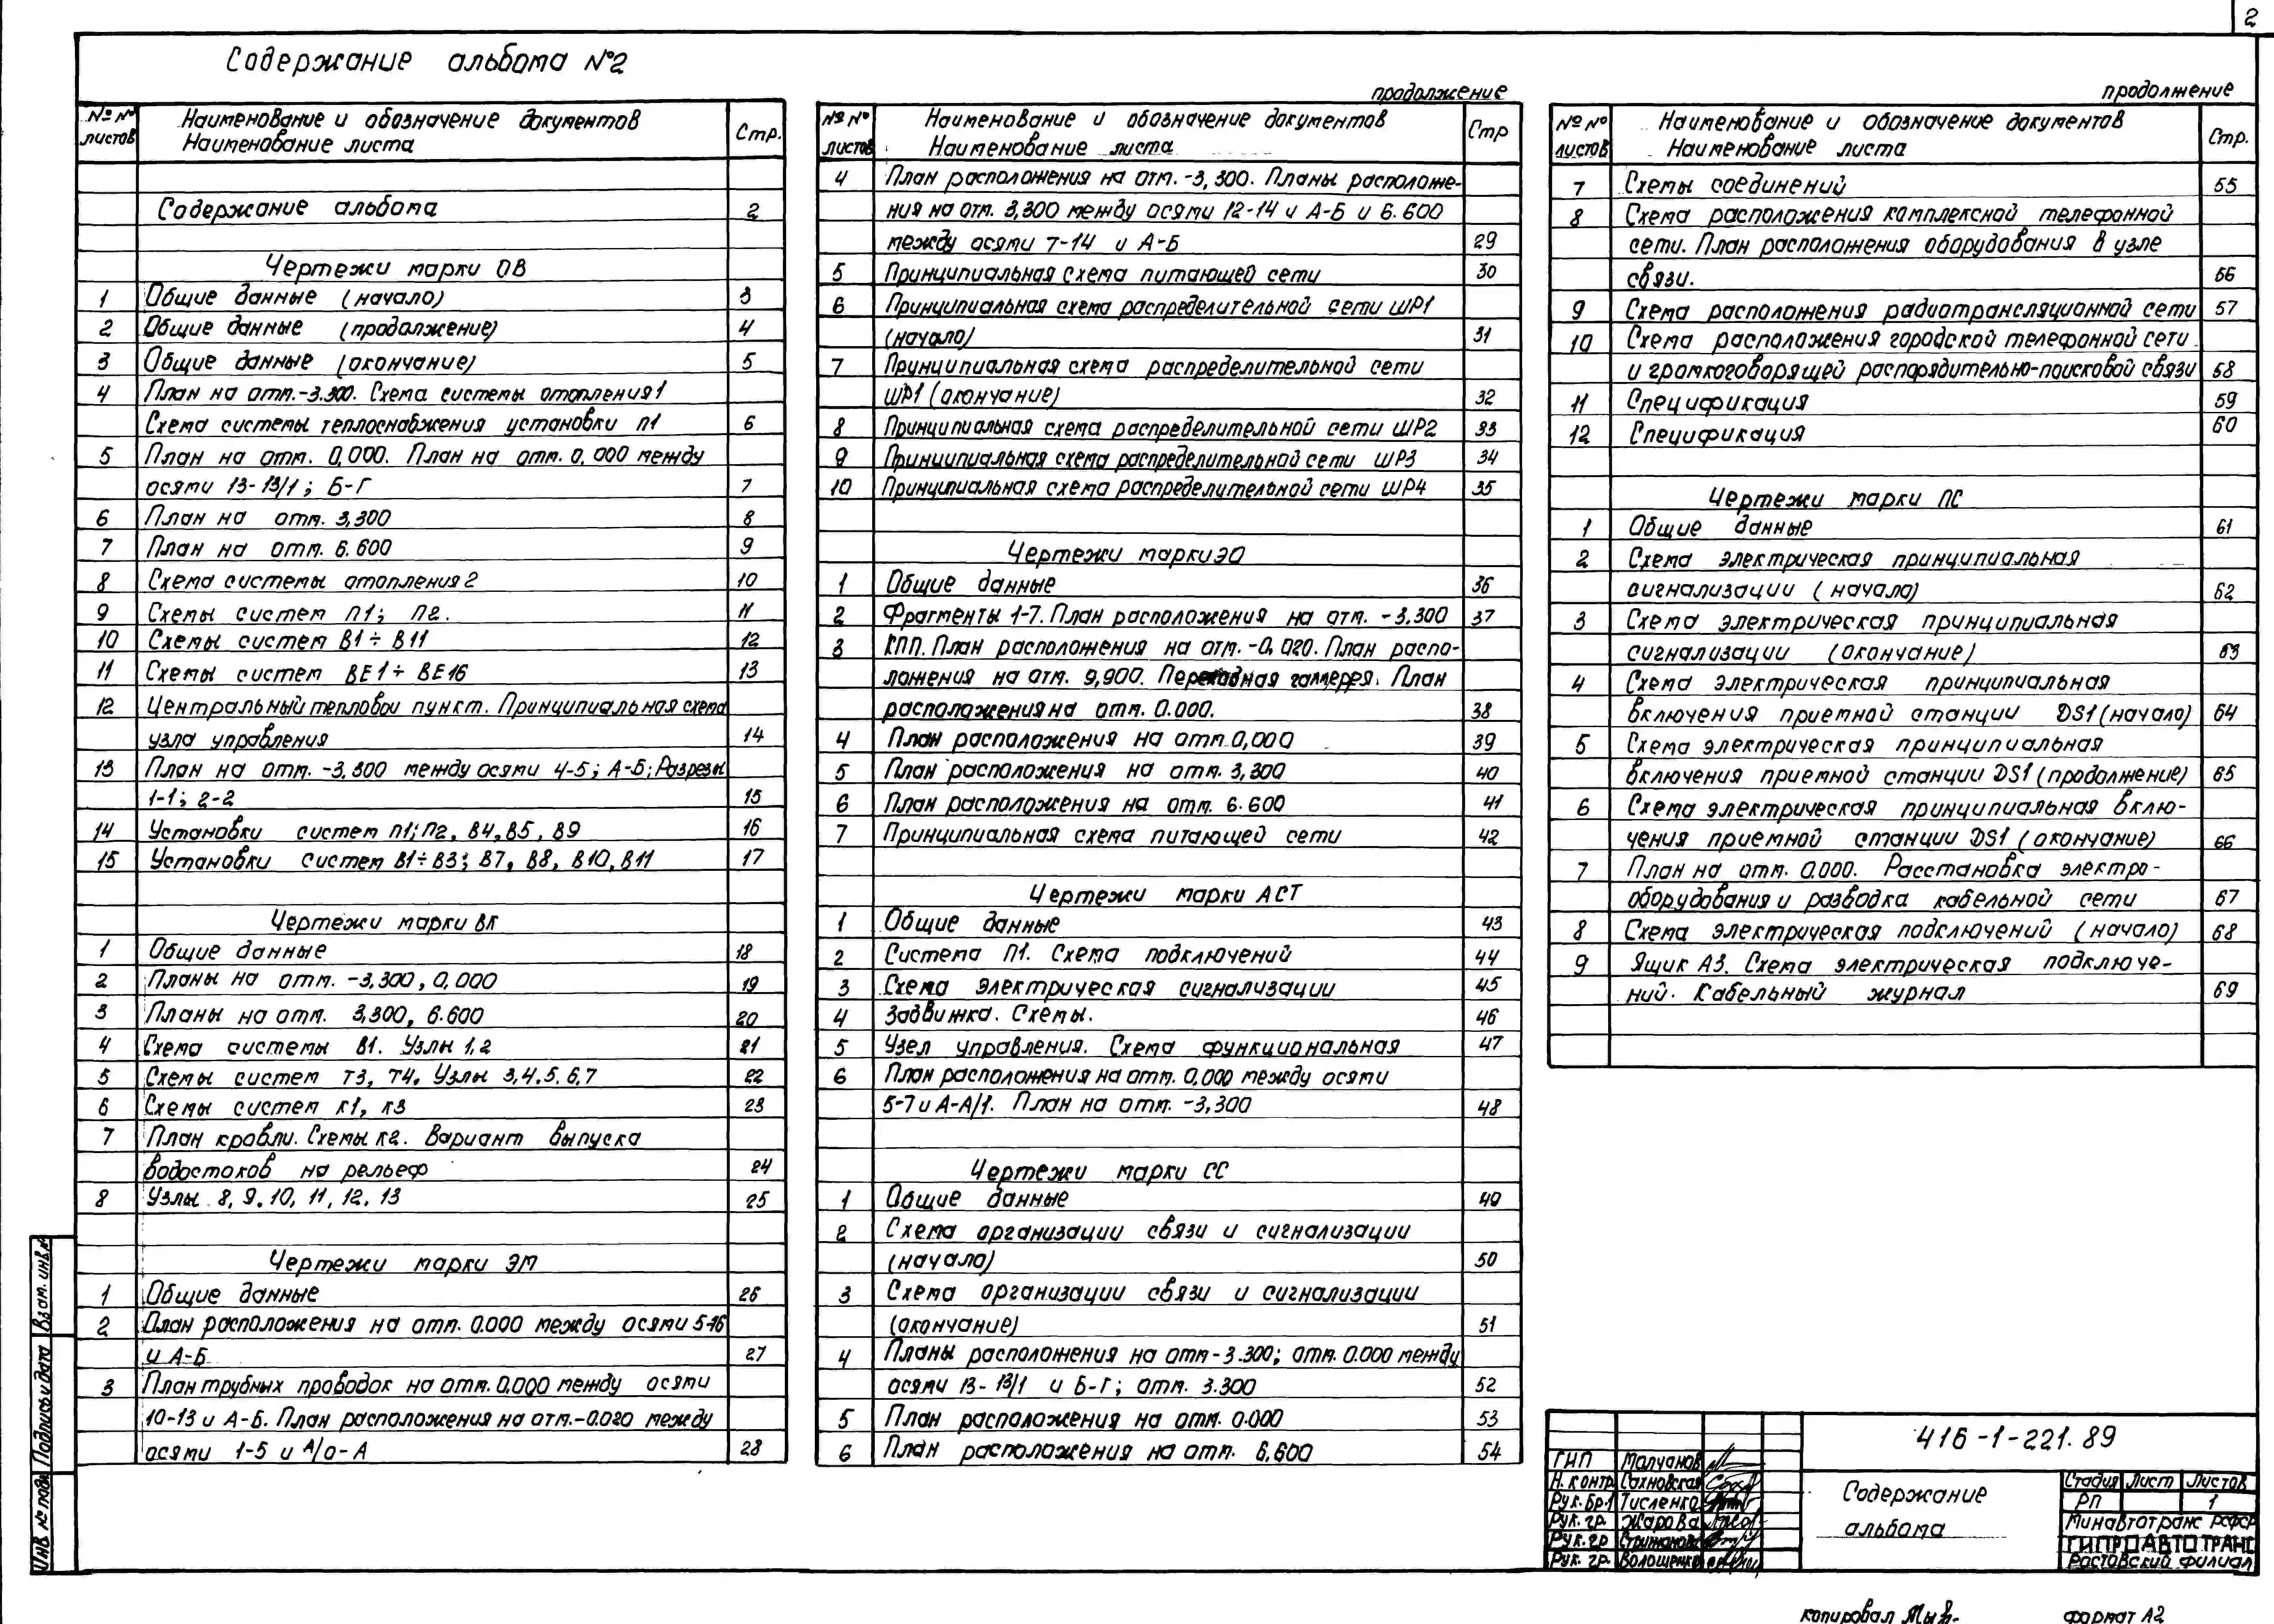 2
Содержание альбома №2
№№ листов
Наименование и обозначение документов
Наименование листа
Стр.
Содержание альбома 2
Чертежи марки ОВ
1 Общие данные (начало) 3
2 Общие данные (продолжение) 4
3 Общие данные (окончание) 5
4 План на отм.-3.300. Схема системы отопления 1
Схема системы теплоснабжения установки П1 6
5 План на отм. 0,000. План на отм. 0,000 между
осями 13-13/1; Б-Г 7
6 План на отм. 3,300 8
7 План на отм. 6.600 9
8 Схема системы отопления 2 10
9 Схемы систем П1; П2. 11
10 Схемы систем В1÷В11 12
11 Схемы систем ВЕ1÷ВЕ16 13
12 Центральный тепловой пункт. Принципиальная схема
узла управления 14
13 План на отм. -3,300 между осями 4-5; А-Б; Разрезы
1-1; 2-2 15
14 Установки систем П1; П2, В4, В5, В9 16
15 Установки систем В1÷В3; В7, В8, В10, В11 17
Чертежи марки ВК
1 Общие данные 18
2 Планы на отм. -3,300, 0,000 19
3 Планы на отм. 3,300, 6.600 20
4 Схема системы В1. Узлы 1,2 21
5 Схемы систем Т3, Т4. Узлы 3,4.5.6,7 22
6 Схемы систем К1, К3 23
7 План кровли. Схемы К2. Вариант выпуска
водостоков на рельеф 24
8 Узлы 8, 9, 10, 11, 12, 13 25
Чертежи марки ЭМ
1 Общие данные 26
2 План расположения на отм. 0.000 между осями 5-16
и А-Б 27
3 План трубных проводок на отм. 0,000 между осями
10-13 и А-Б. План расположения на отм.-0.020 между
осями 1-5 и А/о-А 28
продолжение
№№ листов
Наименование и обозначение документов
Наименование листа
Стр
4 План расположения на отм. -3,300. Планы расположе-
ния на отм. 3,300 между осями 12-14 и А-Б и 6.600
между осями 7-14 и А-Б 29
5 Принципиальная схема питающей сети 30
6 Принципиальная схема распределительной сети ШР1
(начало) 31
7 Принципиальная схема распределительной сети
ШР1 (окончание) 32
8 Принципиальная схема распределительной сети ШР2 33
9 Принципиальная схема распределительной сети ШР3 34
10 Принципиальная схема распределительной сети ШР4 35
Чертежи марки ЭО
1 Общие данные 36
2 Фрагменты 1-7. План расположения на отм. -3.300 37
3 КПП. План расположения на отм. -0,020. План распо-
ложения на отм. 9,900. Переходная галлерея. План
расположения на отм. 0.000. 38
4 План расположения на отм. 0,000 39
5 План расположения на отм. 3,300 40
6 План расположения на отм. 6.600 41
7 Принципиальная схема питающей сети 42
Чертежи марки АСТ
1 Общие данные 43
2 Система П1. Схема подключений 44
3 Схема электрическая сигнализации 45
4 Задвижка. Схемы. 46
5 Узел управления. Схема функциональная 47
6 План расположения на отм. 0,000 между осями
5-7 и А-А/1. План на отм. -3,300 48
Чертежи марки СС
1 Общие данные 49
2 Схема организации связи и сигнализации
(начало) 50
3 Схема организации связи и сигнализации
(окончание) 51
4 Планы расположения на отм -3.300; отм. 0.000 между
осями 13-13/1 и Б-Г; отм. 3.300 52
5 План расположения на отм. 0.000 53
6 План расположения на отм. 6,600 54
продолжение
№№ листов
Наименование и обозначение документов
Наименование листа
Стр.
7 Схемы соединений 55
8 Схема расположения комплексной телефонной
сети. План расположения оборудования в узле
связи. 56
9 Схема расположения радиотрансляционной сети 57
10 Схема расположения городской телефонной сети
и громкоговорящей распорядительно-поисковой связи 58
11 Спецификация 59
12 Спецификация 60
Чертежи марки ПС
1 Общие данные 61
2 Схема электрическая принципиальная
сигнализации (начало) 62
3 Схема электрическая принципиальная
сигнализации (окончание) 63
4 Схема электрическая принципиальная
включения приемной станции DS1 (начало) 64
5 Схема электрическая принципиальная
включения приемной станции DS1 (продолжение) 65
6 Схема электрическая принципиальная вклю-
чения приемной станции DS1 (окончание) 66
7 План на отм. 0.000. Расстановка электро-
оборудования и разводка кабельной сети 67
8 Схема электрическая подключений (начало) 68
9 Ящик А3. Схема электрическая подключе-
ний. Кабельный журнал 69
416-1-221.89
ГИП Молчанов
Н.контр Сахновская
Рук.бр. Тисленко
Рук.гр. Жарова
Рук.гр
Рук.гр. Волощенко
Содержание
альбома
Стадия Лист Листов
РП 1
Минавтотранс РСФСР
ГИПРОАВТОТРАНС
Ростовский филиал
Взам. инв.№
Подпись и дата
Инв № подл
копировал
формат А2